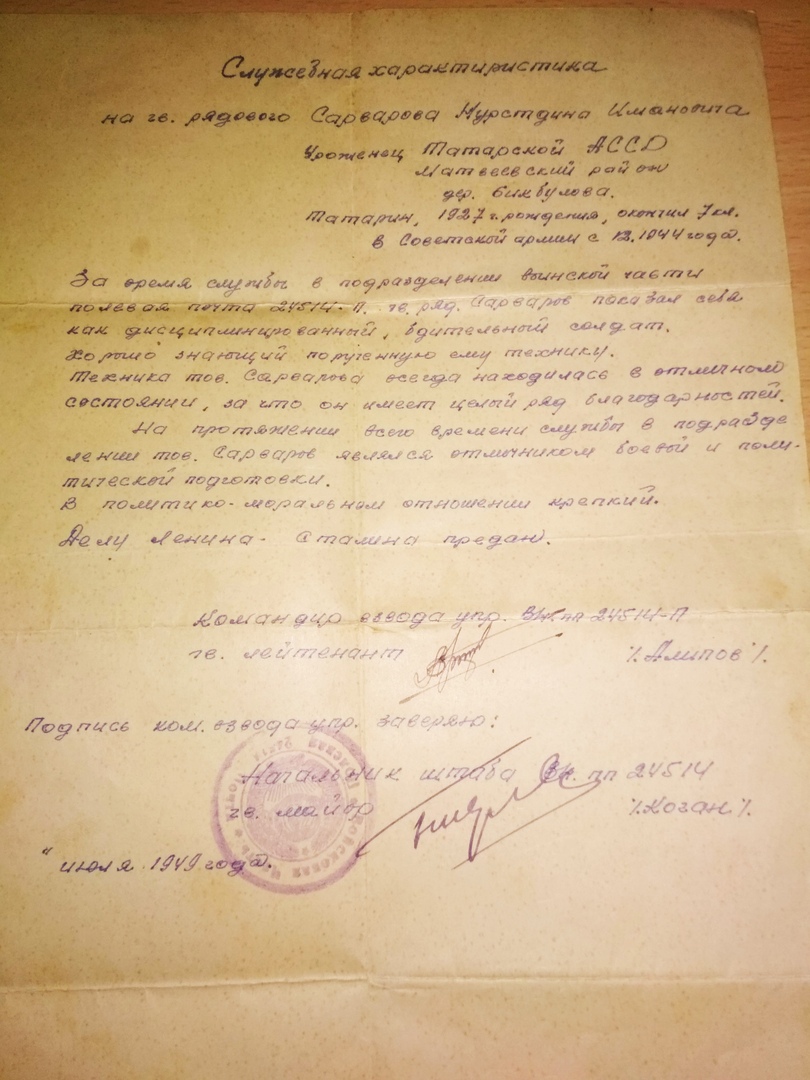 Служебная характиристика
на гв. рядового Сарварова Нурстдина Имановича
Уроженец Татарской АССР
Матвеевский район
дер. Бикбулова.
Татарин, 1927 г. рождения, окончил 7 кл.
в Советской армии с 12.1944 года.
За время службы в подразделении воинской части
полевая почта 24514-П. гв. ряд. Сарваров показал себя
как дисциплинированный, бдительный солдат.
Хорошо знающий порученную ему технику.
Техника тов. Сарварова всегда находилась в отличном
состоянии, за что он имеет целый ряд благодарностей.
На протяжении всего времени службы в подразде
лении тов. Сарваров являлся отличником боевой и поли-
тической подготовки.
В политико-моральном отношении крепкий.
Делу Ленина-Сталина предан.
Командир взвода упр. в/ч. пп 24514-П
гв. лейтенант /.Алипов/.
Подпись ком. взвода упр. заверяю:
Начальник штаба в/ч. пп 24514
гв. майор /.Коган/.
" июля 1949 года.